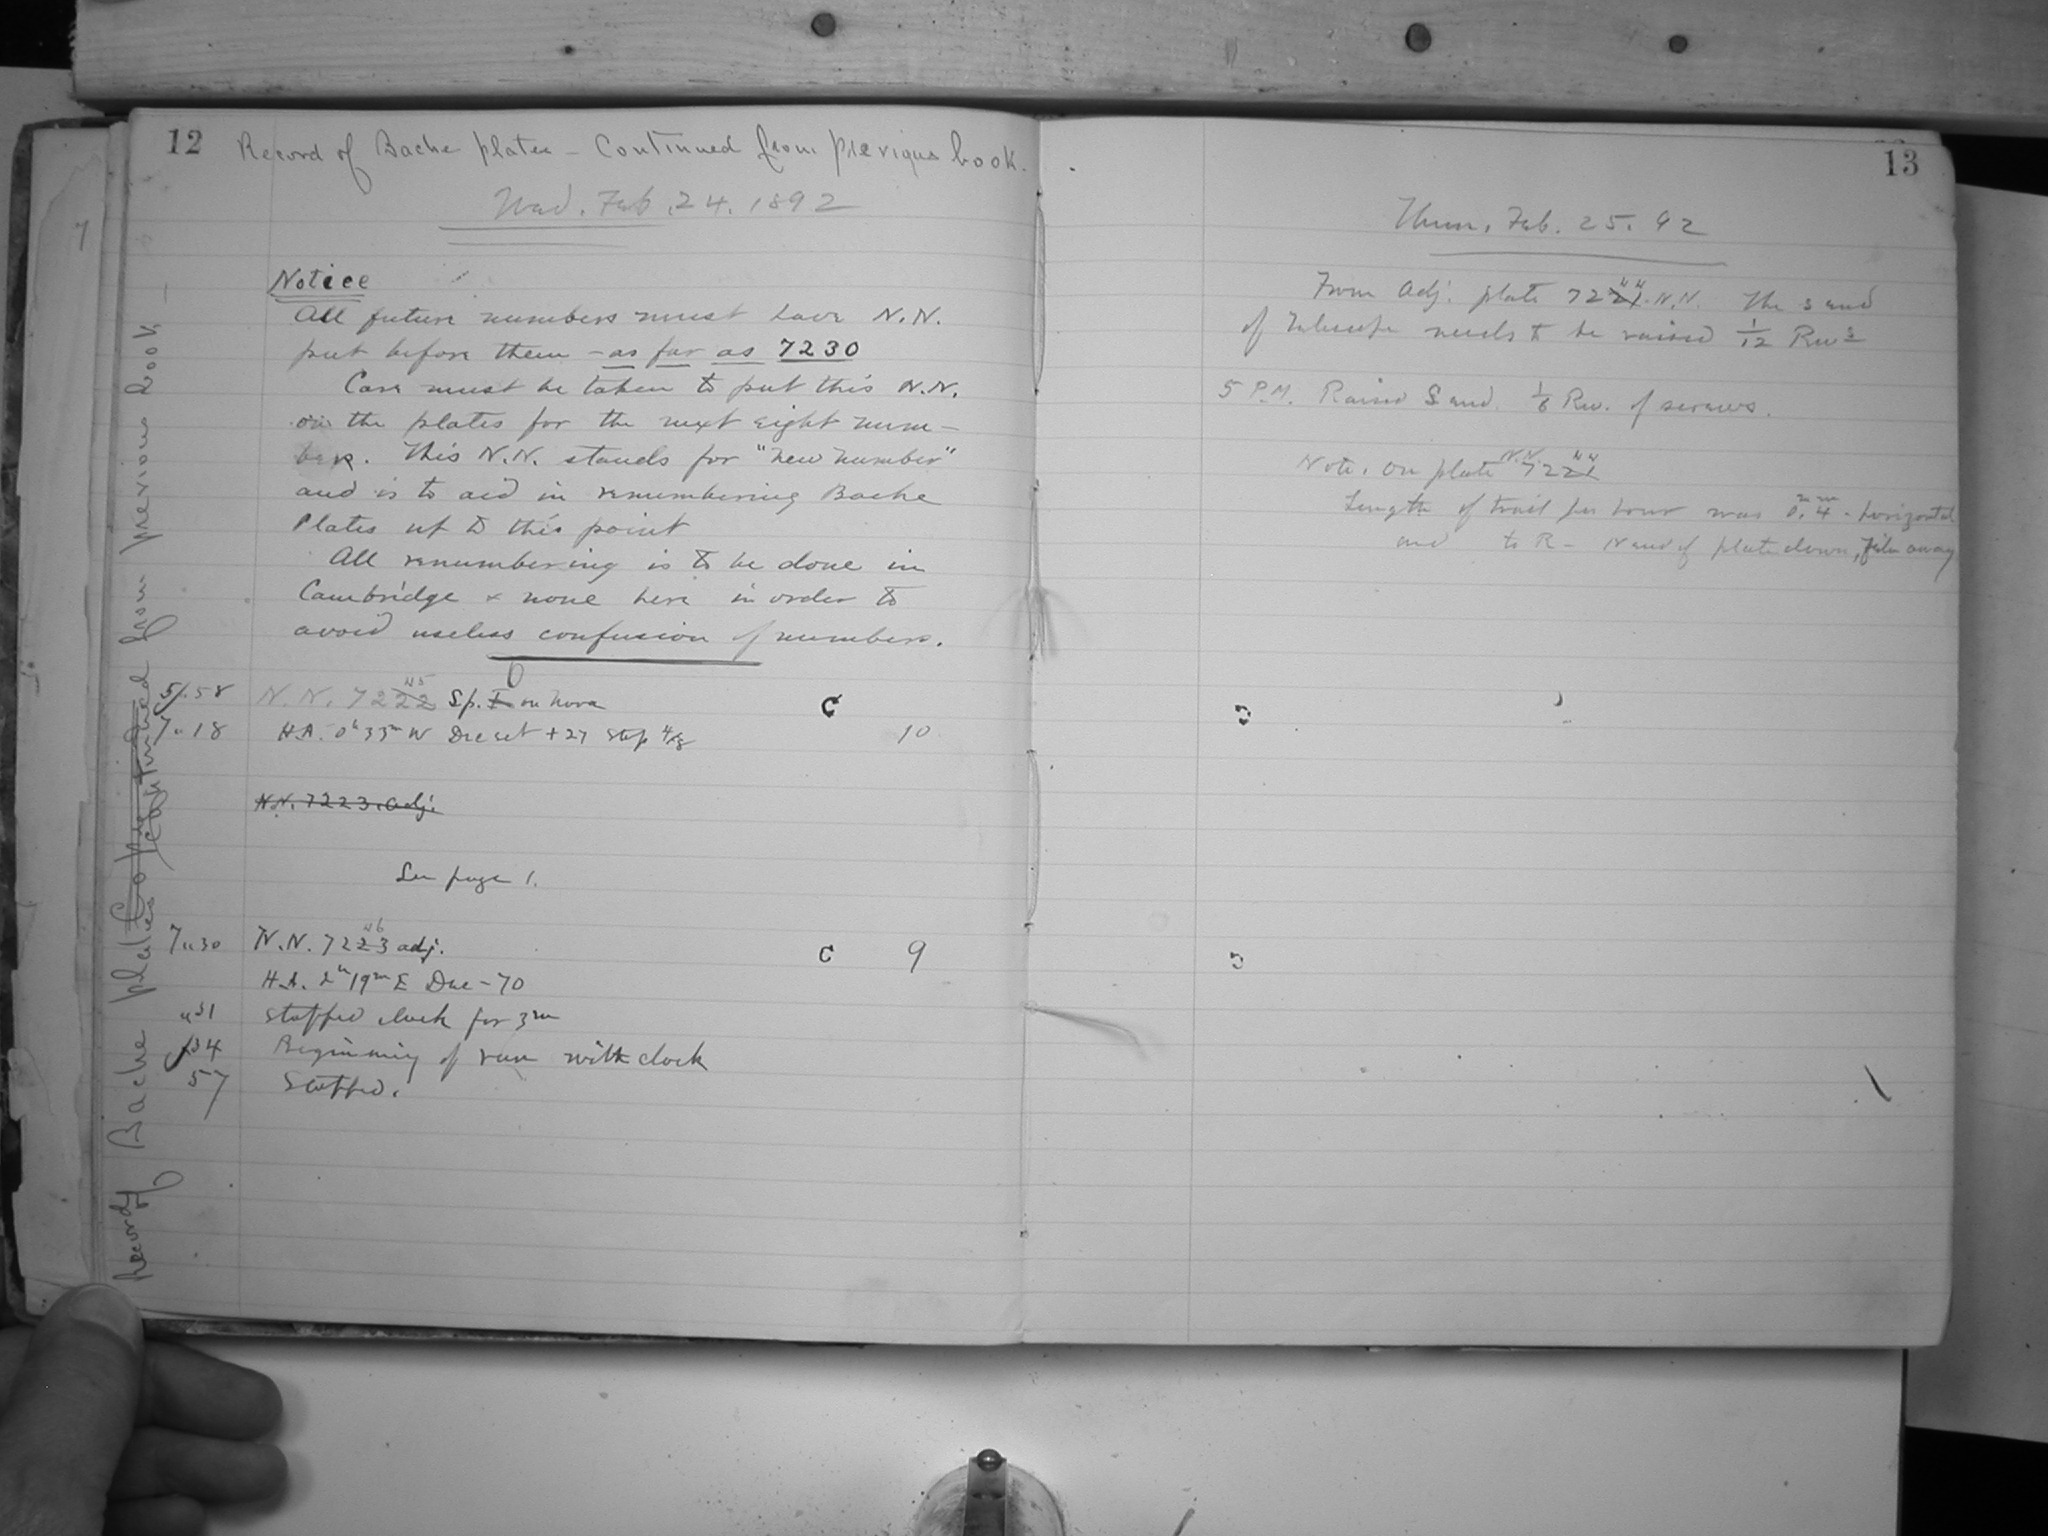 12 Record of Bache plates - Continued from previous book.
Wed. Feb. 24. 1892
Notice
All future numbers must have N.N.
put before them - as far as 7230
Care must be taken to put this N.N.
on the plates for the next eight num-
bers. This N.N. stands for "new number"
and is to aid in renumbering Bache
Plates up to this point
All renumbering is to be done in
Cambridge & none here in order to
avoid useless confusion of numbers.
5 58 N.N. 7222 45 Sp. on Nova C
7 18 H.A. 0h 33m W Dec set + 27 Stop 4/8 10
N.N. 7223. adj.
See page 1.
7 30 N.N. 7223 46 adj. C 9
H.A. 2h 19m E Dec - 70
31 Stopped clock for 3m
34 Beginning of run with clock
57 Stopped.
Record of Bache plates Continued from previous book -
7
13
Thur. Feb. 25. 92
From Adj. plate 7221 44 N.N. The S end
of telescope needs to be raised 1/12 Rev
5 P.M. Raised S end 1/6 Rev. of screws.
Note. On plate N.N. 7221 44
Length of trail per hour was 0.4 mm - horizontal
and to R - N end of plate down, film away